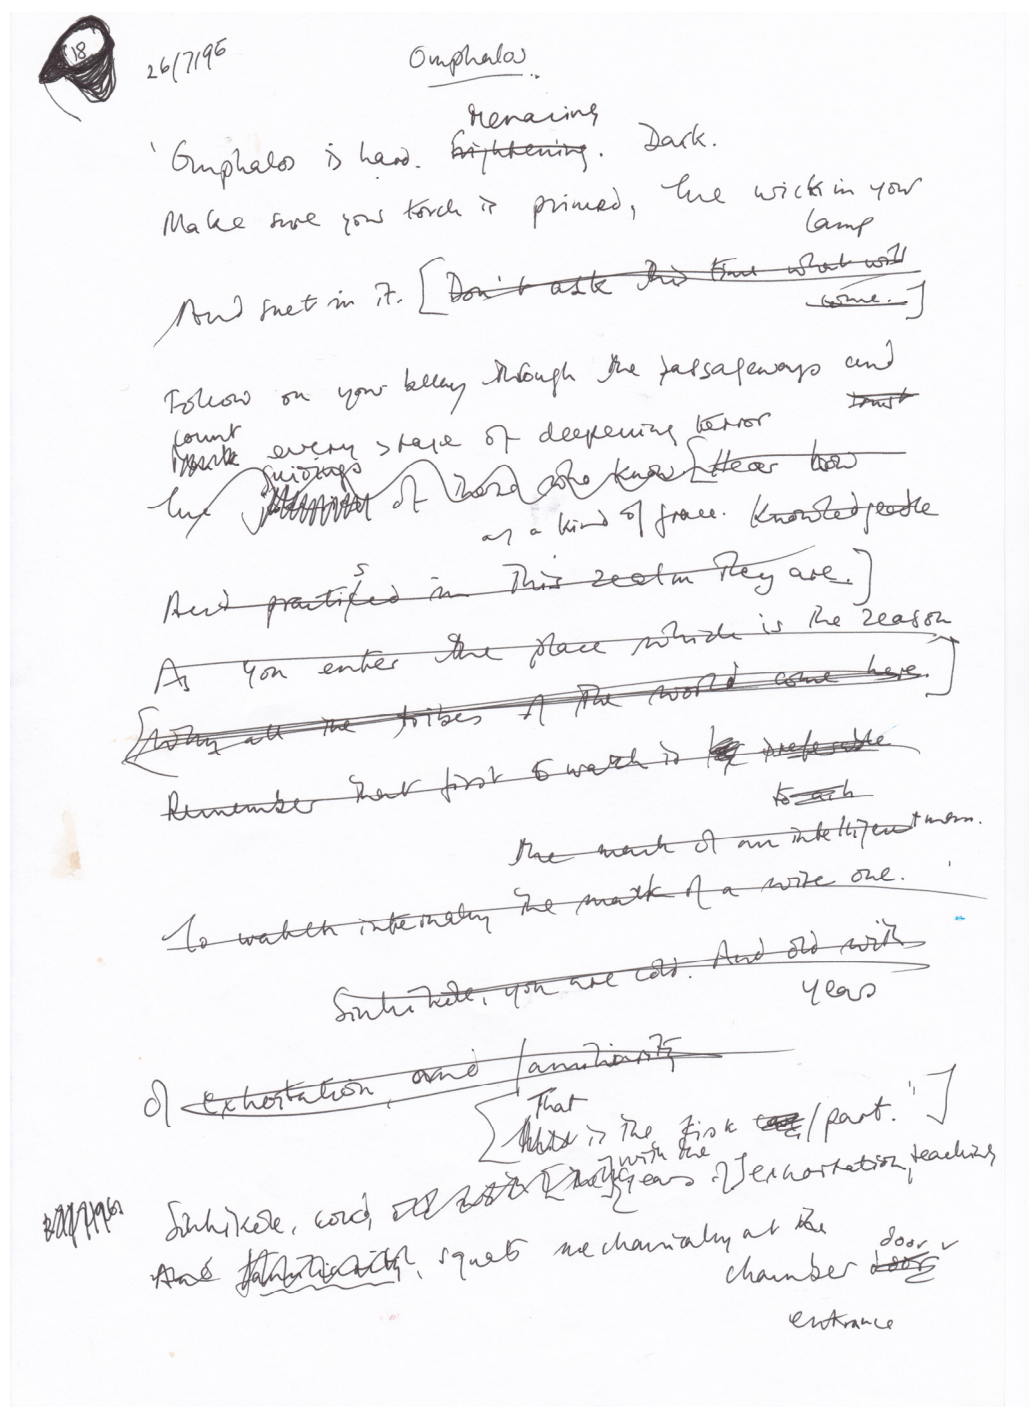 18
26/7/96
Omphalos
menacing
'Omphalos is hard. frightening. Dark.
Make sure your torch is primed, the wick in your
lamp
And suet in it. [Don't ask this time what will
come.]
Follow on your belly through the passageways and
trust
count
mark every stage of deepening terror
guidings
the of those who know [Hear how
as a kind of grace. Knowledgeable
And practised in this realm they are.]
As you enter the place which is the reason
[Why all the tribes of the world come here.]
Remember that first to watch is preferable
to
the mark of an intelligent man.
To watch internally the mark of a wise one.
Sinhikole, you are cold. And old with
years
of exhortation, and familiarity
That
[this is the first / part."]
with the
Sinhikole, cold, years of exhortation, teaching
And familiarity, squats mechanically at the
door
chamber door
entrance